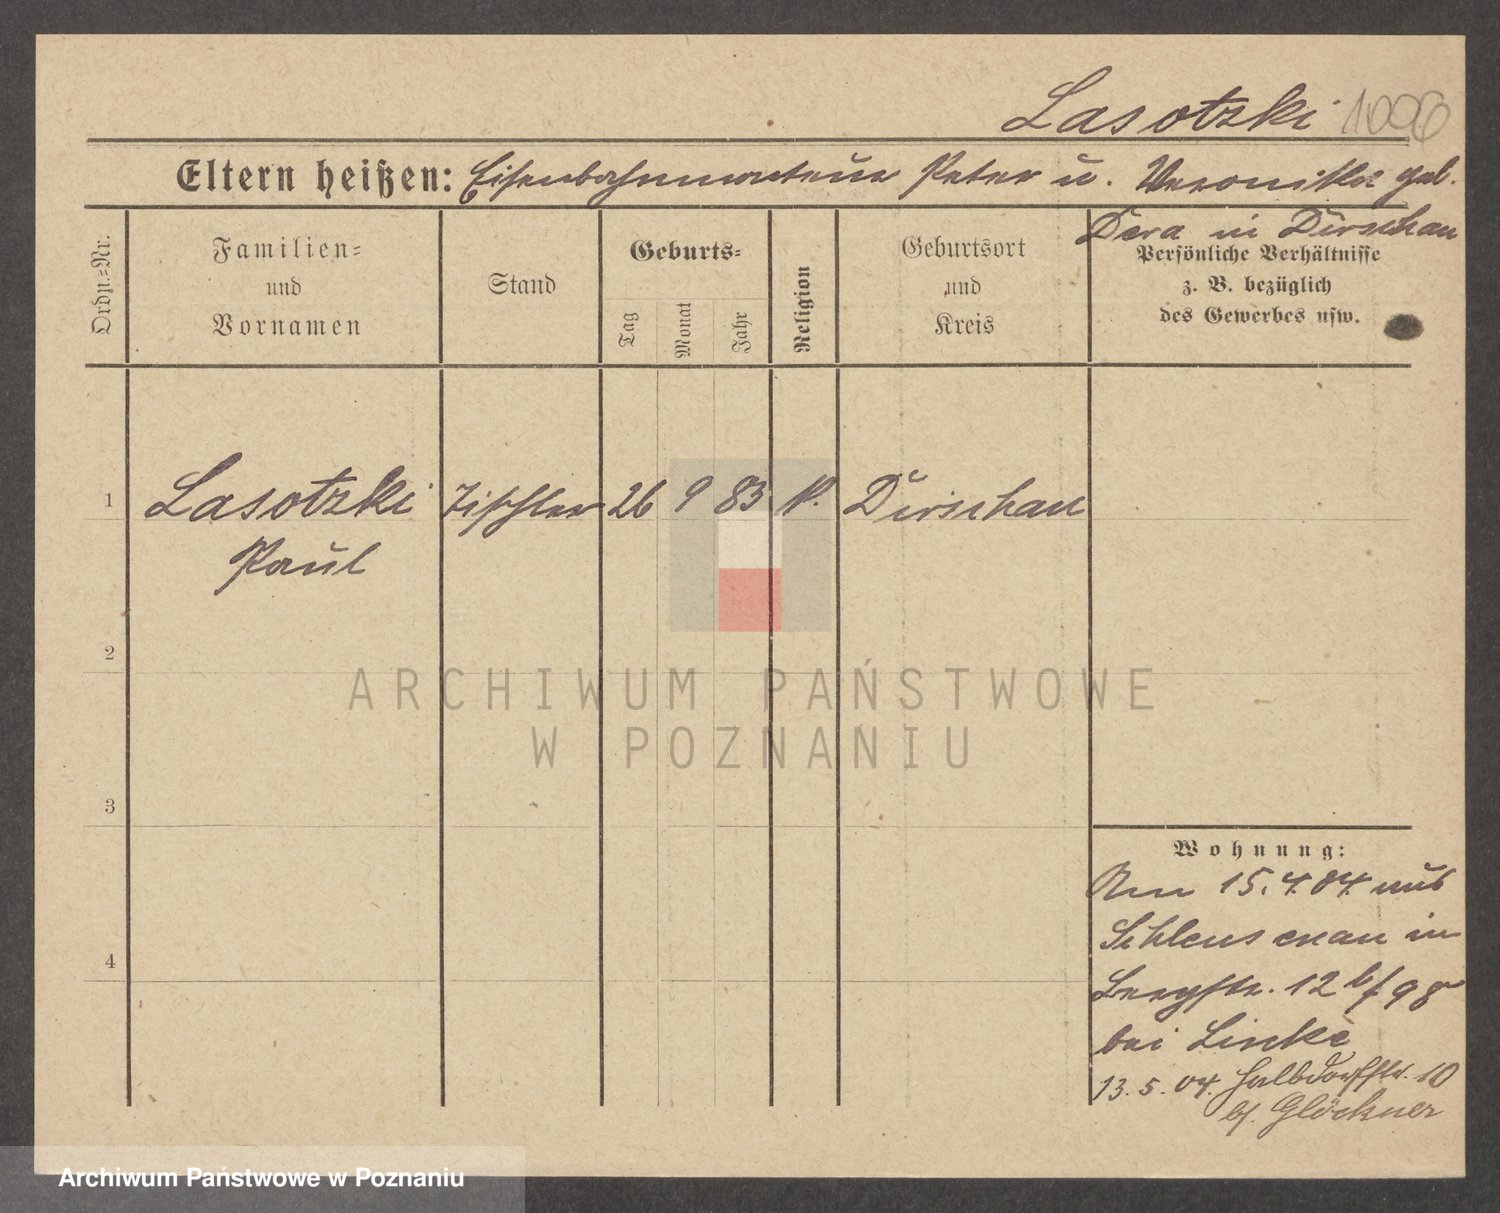 Lasotzki 1096
Eltern heißen: Eisenbahnmonteur Peter u. Veronika geb.
Dera in Dirschau
Ordn.-Nr.
Familien-
und
Vornamen
Stand
Geburts-
Tag
Monat
Jahr
Religion
Geburtsort
und
Kreis
Persönliche Verhältnisse
z. B. bezüglich
des Gewerbes usw.
1 Lasotzki Tischler 26 9 83 K. Dirschau
Paul
2
ARCHIWUM PAŃSTWOWE
W POZNANIU
3
Wohnung:
Am 15.4.04. aus
Schleusenau in
Bergstr. 12 b/98
bei Lincke
4
13.5.04. Halbdorfstr. 10
b/. Glöckner
Archiwum Państwowe w Poznaniu